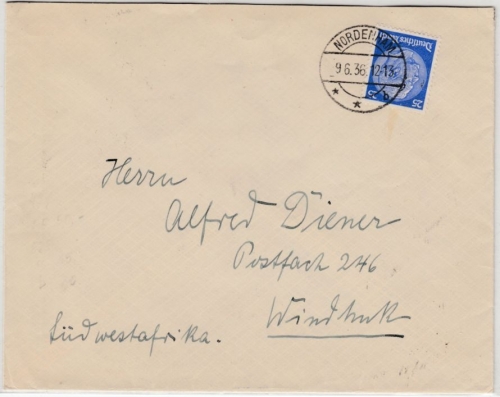 NORDENHAM
9.6.36.12-13
b
Deutsches Reich
25 25
Herrn
Alfred Diener
Postfach 246
Windhuk
Südwestafrika.